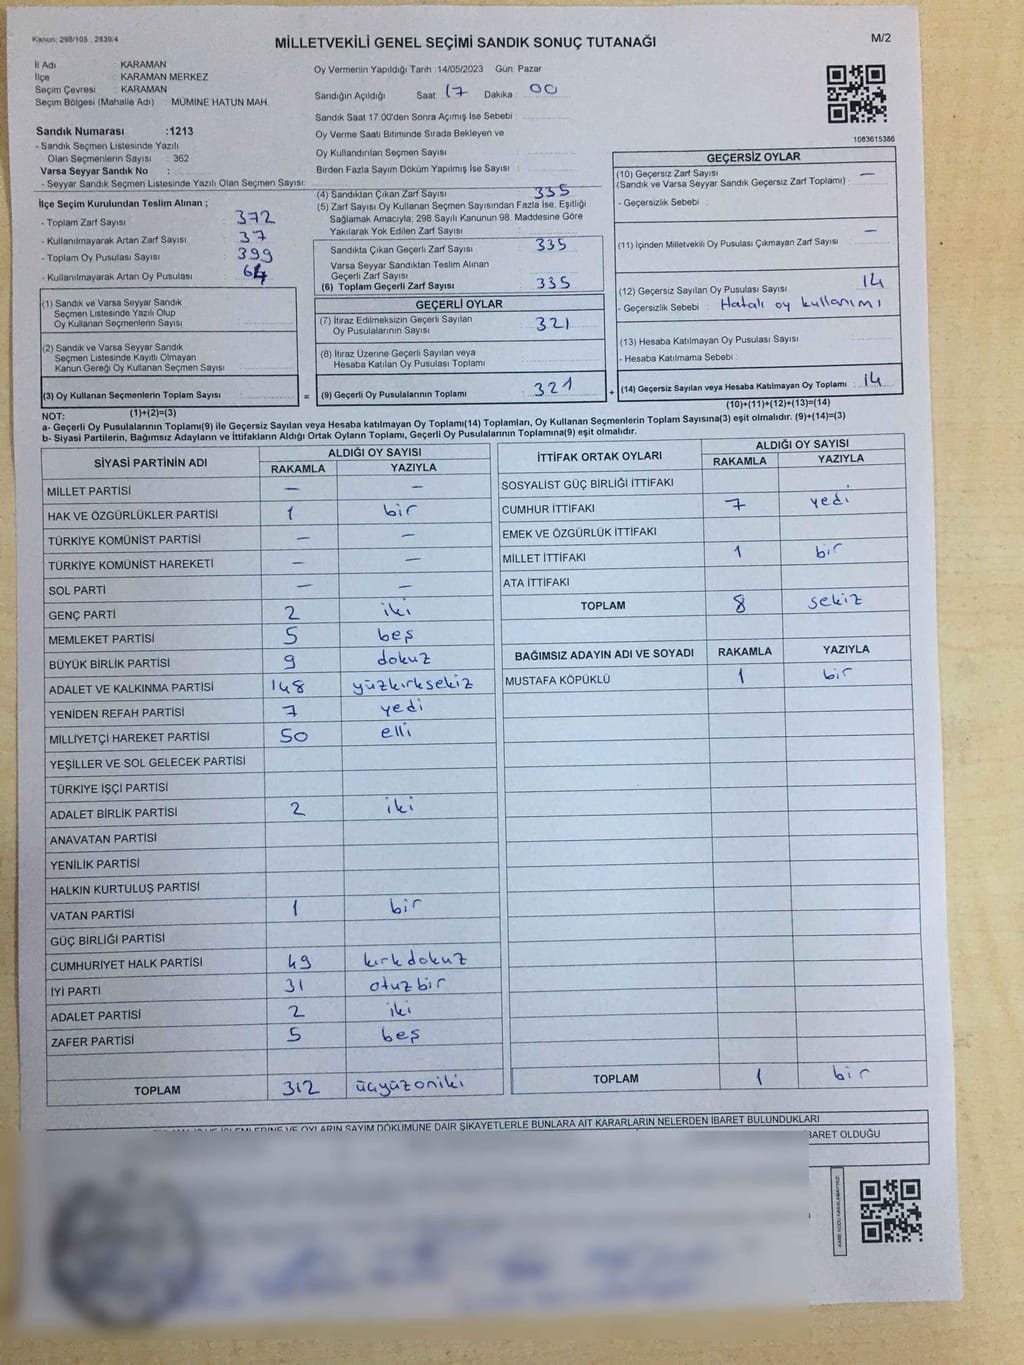 Kanun: 298/105 . 2839/4
MİLLETVEKİLİ GENEL SEÇİMİ SANDIK SONUÇ TUTANAĞI
M/2
İl Adı : KARAMAN
İlçe : KARAMAN MERKEZ
Seçim Çevresi : KARAMAN
Seçim Bölgesi (Mahalle Adı) : MÜMİNE HATUN MAH.
Sandık Numarası :1213
- Sandık Seçmen Listesinde Yazılı
Olan Seçmenlerin Sayısı : 362
Varsa Seyyar Sandık No :
- Seyyar Sandık Seçmen Listesinde Yazılı Olan Seçmen Sayısı:
İlçe Seçim Kurulundan Teslim Alınan ;
- Toplam Zarf Sayısı : 372
- Kullanılmayarak Artan Zarf Sayısı : 37
- Toplam Oy Pusulası Sayısı : 399
- Kullanılmayarak Artan Oy Pusulası : 64
(1) Sandık ve Varsa Seyyar Sandık
Seçmen Listesinde Yazılı Olup
Oy Kullanan Seçmenlerin Sayısı :
(2) Sandık ve Varsa Seyyar Sandık
Seçmen Listesinde Kayıtlı Olmayan
Kanun Gereği Oy Kullanan Seçmen Sayısı :
(3) Oy Kullanan Seçmenlerin Toplam Sayısı :
(1)+(2)=(3)
Oy Vermenin Yapıldığı Tarih 14/05/2023 Gün: Pazar
Sandığın Açıldığı Saat: 17 Dakika : 00
Sandık Saat 17.00'den Sonra Açımış İse Sebebi :
Oy Verme Saati Bitiminde Sırada Bekleyen ve
Oy Kullandırılan Seçmen Sayısı :
Birden Fazla Sayım Döküm Yapılmış İse Sayısı :
(4) Sandıktan Çıkan Zarf Sayısı : 335
(5) Zarf Sayısı Oy Kullanan Seçmen Sayısından Fazla İse, Eşitliği
Sağlamak Amacıyla; 298 Sayılı Kanunun 98. Maddesine Göre
Yakılarak Yok Edilen Zarf Sayısı :
Sandıkta Çıkan Geçerli Zarf Sayısı : 335
Varsa Seyyar Sandıktan Teslim Alınan
Geçerli Zarf Sayısı :
(6) Toplam Geçerli Zarf Sayısı : 335
GEÇERLİ OYLAR
(7) İtiraz Edilmeksizin Geçerli Sayılan
Oy Pusulalarının Sayısı : 321
(8) İtiraz Üzerine Geçerli Sayılan veya
Hesaba Katılan Oy Pusulası Toplamı :
= (9) Geçerli Oy Pusulalarının Toplamı : 321 +
1083615386
GEÇERSİZ OYLAR
(10) Geçersiz Zarf Sayısı : —
(Sandık ve Varsa Seyyar Sandık Geçersiz Zarf Toplamı)
- Geçersizlik Sebebi :
(11) İçinden Milletvekili Oy Pusulası Çıkmayan Zarf Sayısı : —
(12) Geçersiz Sayılan Oy Pusulası Sayısı : 14
- Geçersizlik Sebebi : Hatalı oy kullanımı
(13) Hesaba Katılmayan Oy Pusulası Sayısı :
- Hesaba Katılmama Sebebi :
(14) Geçersiz Sayılan veya Hesaba Katılmayan Oy Toplamı : 14
(10)+(11)+(12)+(13)=(14)
NOT:
a- Geçerli Oy Pusulalarının Toplamı(9) ile Geçersiz Sayılan veya Hesaba katılmayan Oy Toplamı(14) Toplamları, Oy Kullanan Seçmenlerin Toplam Sayısına(3) eşit olmalıdır. (9)+(14)=(3)
b- Siyasi Partilerin, Bağımsız Adayların ve İttifakların Aldığı Ortak Oyların Toplamı, Geçerli Oy Pusulalarının Toplamına(9) eşit olmalıdır.
SİYASİ PARTİNİN ADI ALDIĞI OY SAYISI
RAKAMLA YAZIYLA
MİLLET PARTİSİ — —
HAK VE ÖZGÜRLÜKLER PARTİSİ 1 bir
TÜRKİYE KOMÜNİST PARTİSİ — —
TÜRKİYE KOMÜNİST HAREKETİ — —
SOL PARTİ — —
GENÇ PARTİ 2 iki
MEMLEKET PARTİSİ 5 beş
BÜYÜK BİRLİK PARTİSİ 9 dokuz
ADALET VE KALKINMA PARTİSİ 148 yüzkırksekiz
YENİDEN REFAH PARTİSİ 7 yedi
MİLLİYETÇİ HAREKET PARTİSİ 50 elli
YEŞİLLER VE SOL GELECEK PARTİSİ
TÜRKİYE İŞÇİ PARTİSİ
ADALET BİRLİK PARTİSİ 2 iki
ANAVATAN PARTİSİ
YENİLİK PARTİSİ
HALKIN KURTULUŞ PARTİSİ
VATAN PARTİSİ 1 bir
GÜÇ BİRLİĞİ PARTİSİ
CUMHURİYET HALK PARTİSİ 49 kırkdokuz
İYİ PARTİ 31 otuzbir
ADALET PARTİSİ 2 iki
ZAFER PARTİSİ 5 beş
TOPLAM 312 üçyüzoniki
İTTİFAK ORTAK OYLARI ALDIĞI OY SAYISI
RAKAMLA YAZIYLA
SOSYALİST GÜÇ BİRLİĞİ İTTİFAKI
CUMHUR İTTİFAKI 7 yedi
EMEK VE ÖZGÜRLÜK İTTİFAKI
MİLLET İTTİFAKI 1 bir
ATA İTTİFAKI
TOPLAM 8 sekiz
BAĞIMSIZ ADAYIN ADI VE SOYADI RAKAMLA YAZIYLA
MUSTAFA KÖPÜKLÜ 1 bir
TOPLAM 1 bir
OYLARIN SAYIM DÖKÜMÜNE DAİR ŞİKAYETLERLE BUNLARA AİT KARARLARIN NELERDEN İBARET BULUNDUKLARI
İBARET OLDUĞU